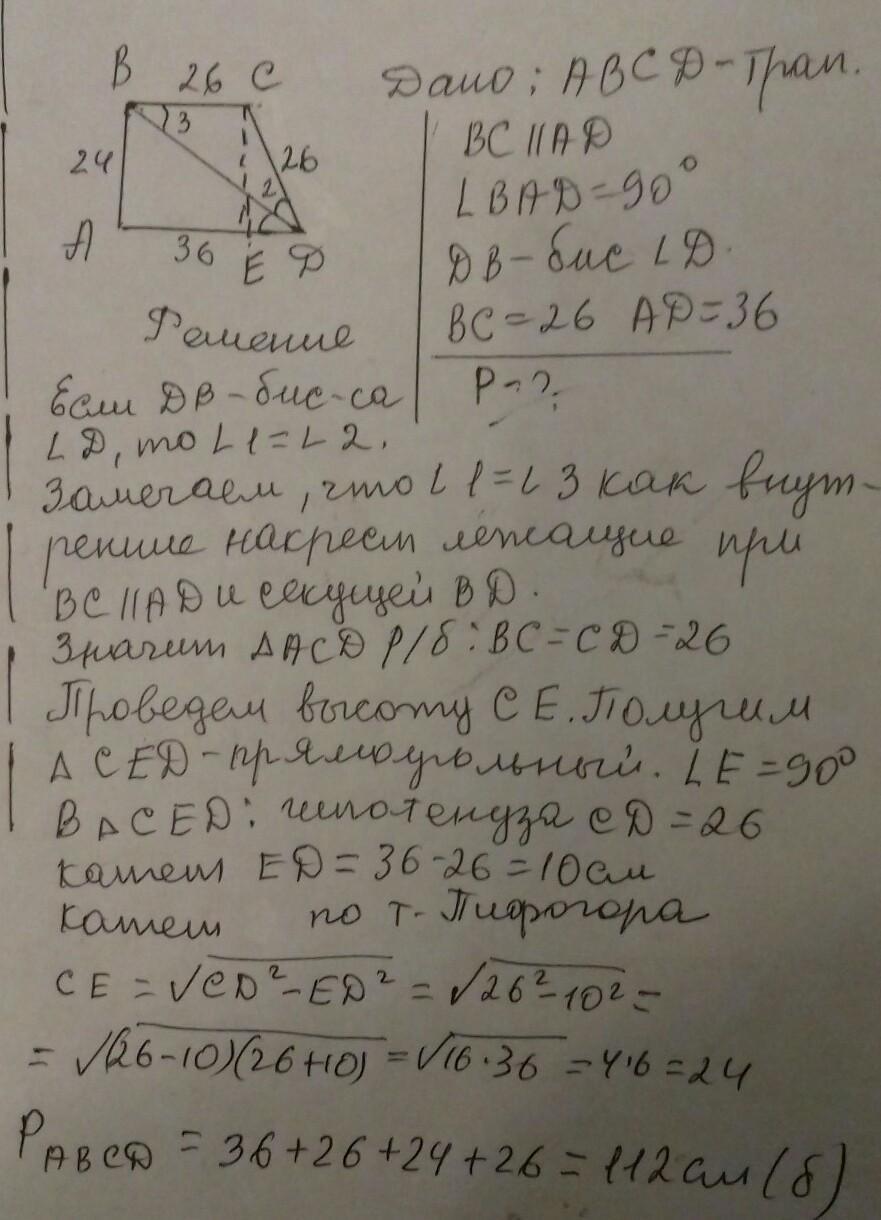 B 26 C
3
24
26
2
1
A 36 E D
Дано: ABCD - трап.
BC || AD
∠BAD = 90°
DB - бис ∠D.
BC = 26 AD = 36
P - ?
Решение
Если DB - бис-са
∠D, то ∠1 = ∠2.
Замечаем, что ∠1 = ∠3 как внут-
ренние накрест лежащие при
BC || AD и секущей BD.
Значит ΔACD р/б: BC = CD = 26
Проведем высоту CE. Получим
ΔCED - прямоугольный. ∠E = 90°
В ΔCED: гипотенуза CD = 26
катет ED = 36 - 26 = 10 см
катет по т. Пифогора
CE = √CD² - ED² = √26² - 10² =
= √(26-10)(26+10) = √16·36 = 4·6 = 24
P ABCD = 36 + 26 + 24 + 26 = 112 см (б)